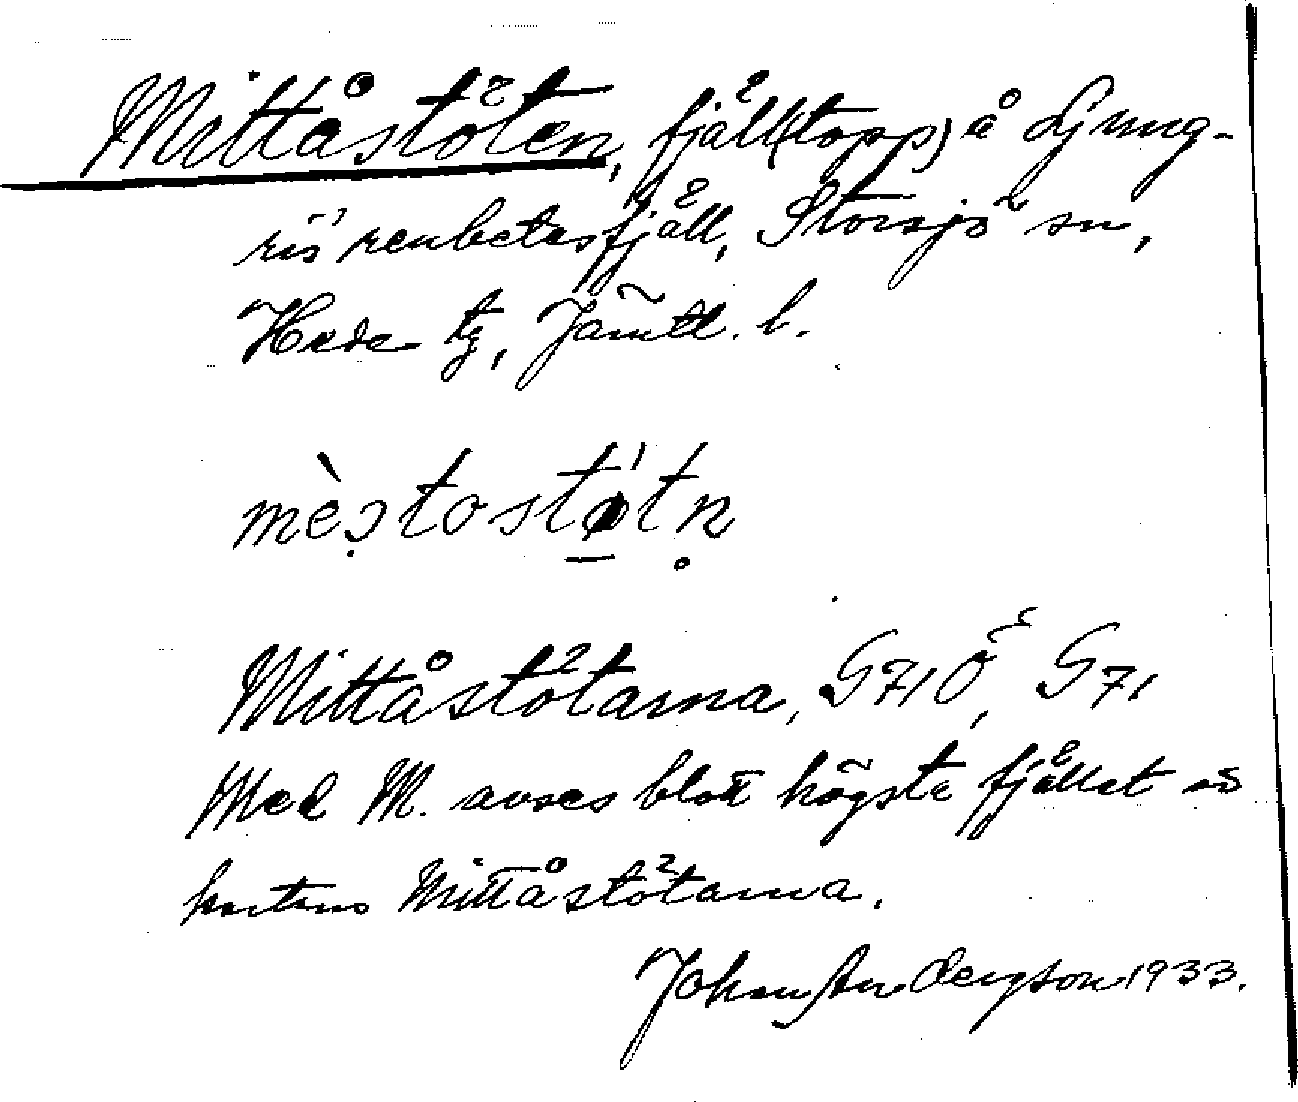 Mittåstöten, fjäll(topp) å Ljung-
ris renbetesfjäll, Storsjö sn,
Hede tg, Jämtl. l.
mèstostö́tn̥
Mittåstötarna, G710, G71
Med M. avses blott högsta fjället av
kartans Mittåstötarna.
Johan An Bengtson 1933.